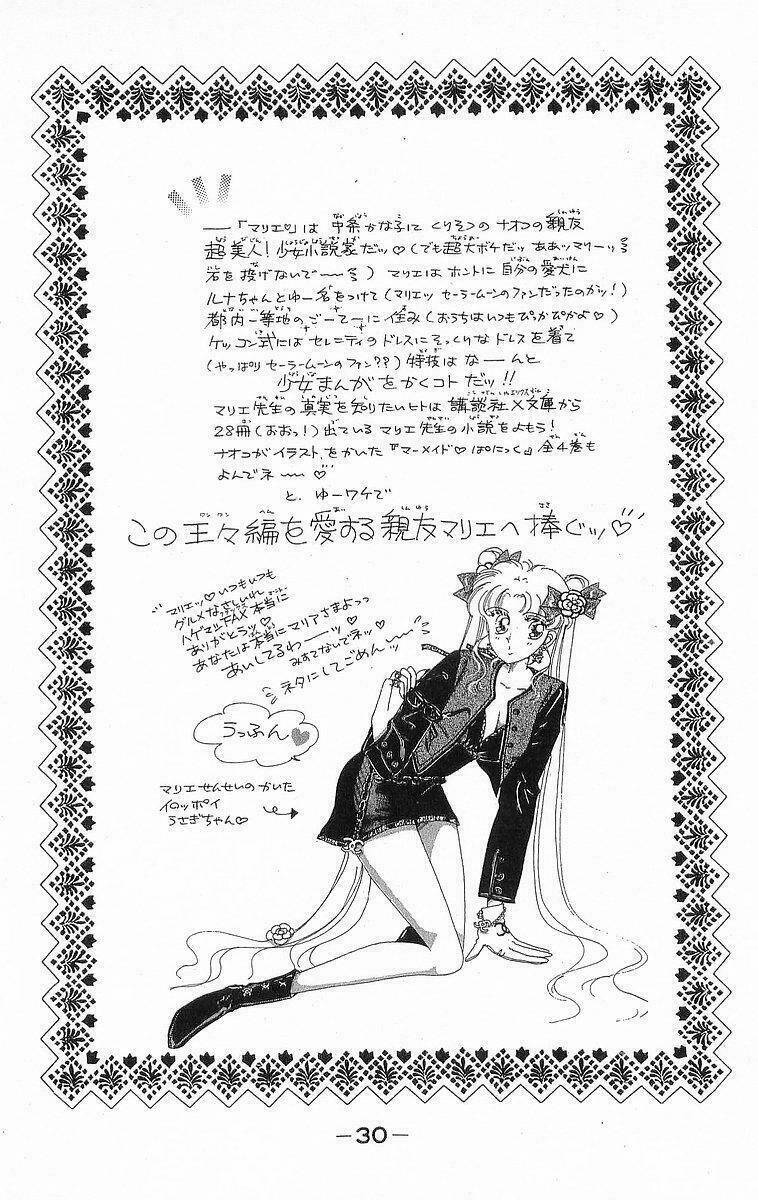 ―「マリエ」は 中条かな子に くりそつの ナオコの親友
超美人！少女小説家だッ♡(でも超大ボケだッ ああッマリーッ
岩を投げないで〜〜) マリエは ホントに 自分の愛犬に
ルナちゃんとゆー名をつけて(マリエッ セーラームーンのファンだったのかッ！)
都内一等地のごーてーに 住み(おうちはいつもぴかぴかよ♡)
ケッコン式には セレニティのドレスにそっくりな ドレスを着て
(やっぱり セーラームーンのファン？？) 特技は な――んと
少女まんがをかくコトだッ!!
マリエ先生の真実を知りたいヒトは 講談社X文庫から
28冊(おおっ！)出ている マリエ先生の小説をよもう！
ナオコがイラストをかいた『マーメイド♡ぱにっく』全4巻も
よんでネ〜〜♡
と、ゆーワケで
この王々編を愛する親友マリエへ捧ぐッ♡
マリエッ♡いつもいつも
グルメなさしいれ
ハゲマシFAX 本当に
ありがとうッ♡
あなたは本当にマリアさまよっっ
あいしてるわーッ♡
みすてないでネッ♡
ネタにしてごめんッ
うっふん♥
マリエせんせいの かいた
イロッポイ
うさぎちゃん♡
―30―